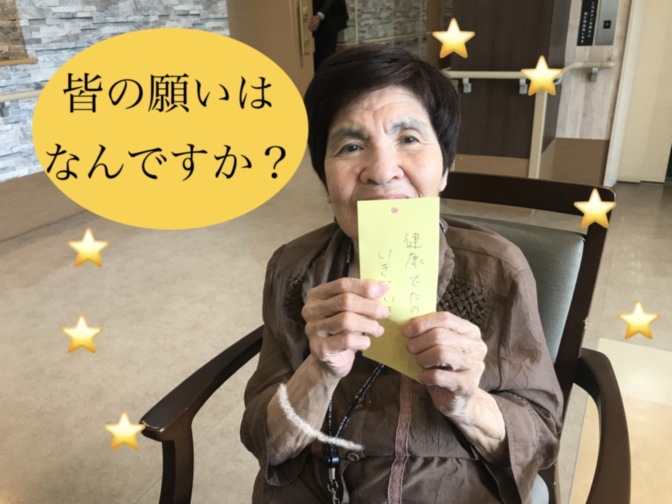 皆の願いは
なんですか？
健康でたの
いき